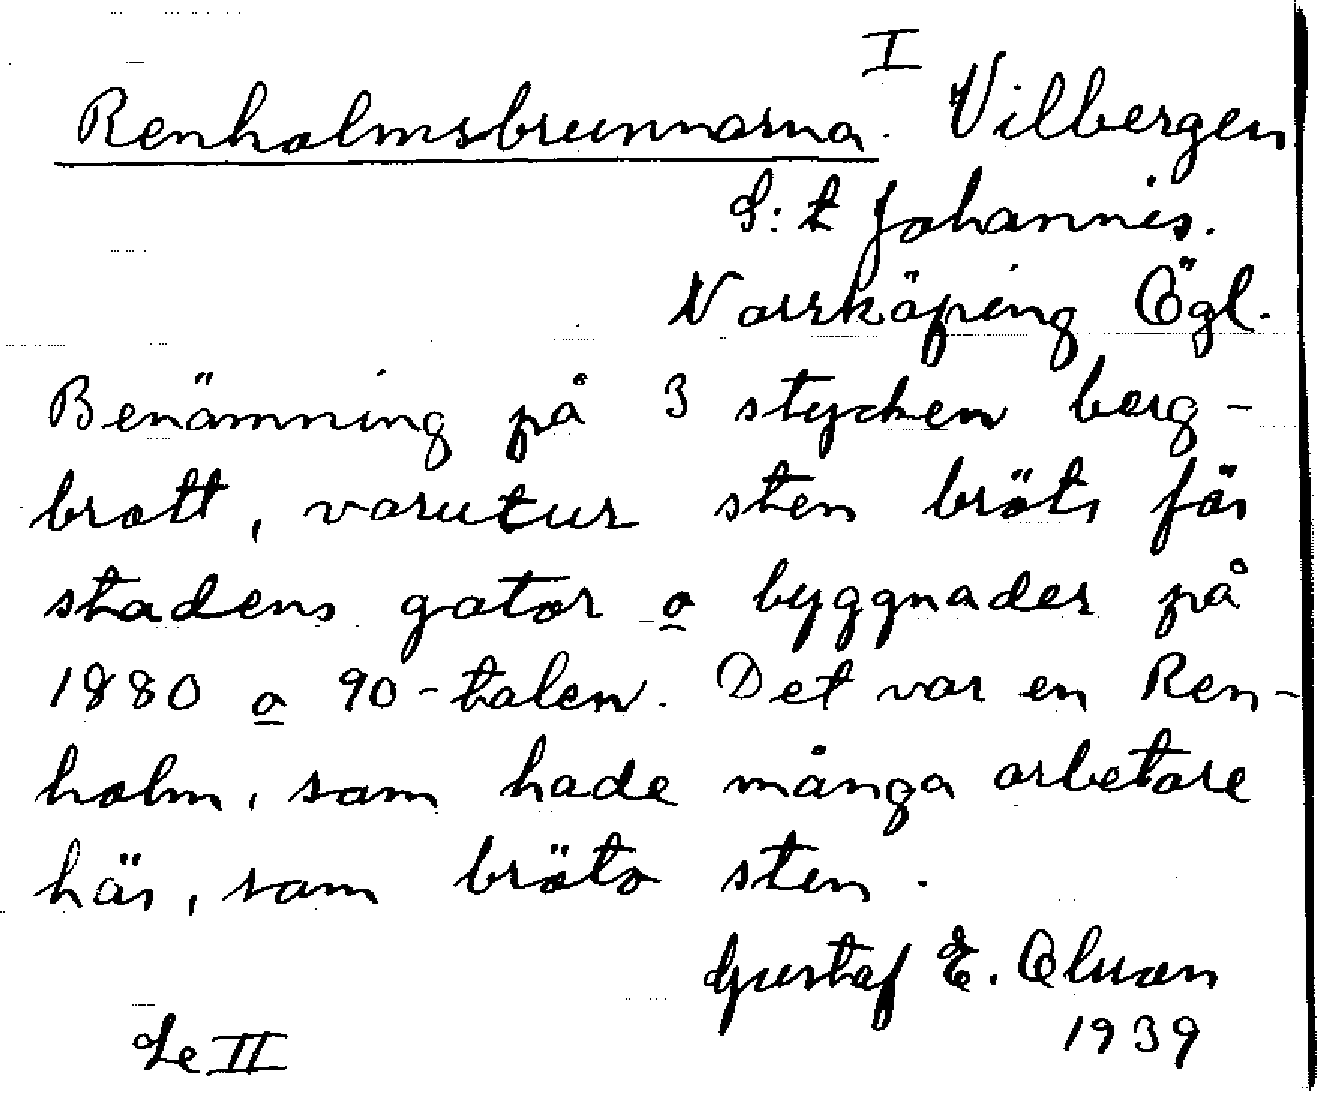 I
Renholmsbrunnarna. Vilbergen
S:t Johannis.
Norrköping Ögl.
Benämning på 3 stycken berg-
brott, varutur sten bröts för
stadens gator o byggnader på
1880 o 90-talen. Det var en Ren-
holm, som hade många arbetare
här, som bröto sten.
Gustaf E. Olsson
1939
Se II